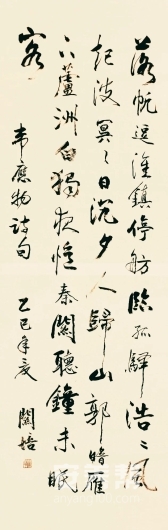 落帆逗淮鎮停舫臨孤驛浩〻風
起波冥〻日沉夕人歸山郭暗雁
下蘆洲白獨夜憶秦關聽鐘未眠
客
韋應物詩句 乙巳年夏